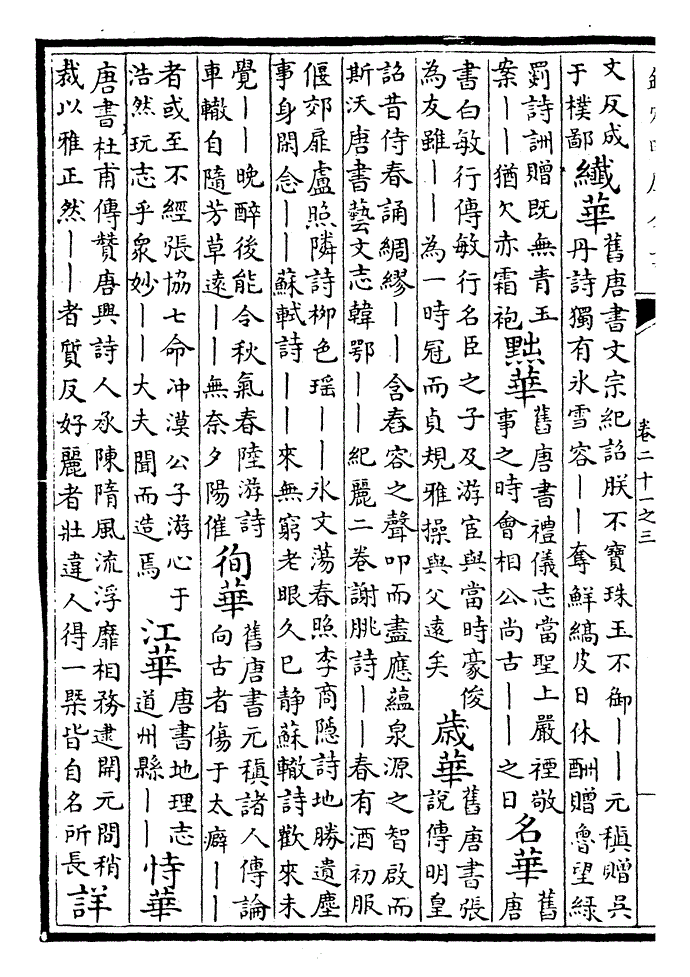 卷二十一之三
文反成
于樸鄙
纎華
舊唐書文宗紀詔朕不寳珠玉不御——元稹贈吳
丹詩獨有氷雪容——奪鮮縞皮日休酬贈魯望緑
罰詩詶贈既無青玉
案——猶欠赤霜袍
黜華
舊唐書禮儀志當聖上嚴禋敬
事之時會相公尚古——之日
名華
舊
唐
書白敏行傳敏行名臣之子及游宦與當時豪俊
為友雖——為一時冠而貞規雅操與父遠矣
歳華
舊唐書張
說傳明皇
詔昔侍春誦綢繆——含舂容之聲叩而盡應蘊泉源之智啟而
斯沃唐書藝文志韓鄂——紀麗二卷謝朓詩——春有酒初服
偃郊扉盧照隣詩栁色瑶——氷文蕩春照李商隠詩地勝遺塵
事身閑念——蘇軾詩——來無窮老眼久已静蘇轍詩歡來未
覺——晚醉後能令秋氣春陸游詩
車轍自隨芳草逺——無奈夕陽催
徇華
舊唐書元稹諸人傳論
向古者傷于太癖——
者或至不經張協七命冲漠公子游心于
浩然玩志乎衆妙——大夫聞而造焉
江華
唐書地理志
道州縣——
恃華
唐書杜甫傳贊唐興詩人承陳隋風流浮靡相務逮開元間稍
裁以雅正然——者質反好麗者壮違人得一槩皆自名所長
詳